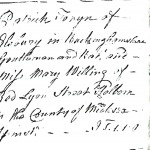 Patrick Tonyn of
in Buckinghamshire
Gentleman and
Miss Mary Willing of
Red Lyon Street Holborn
in the County of Middx